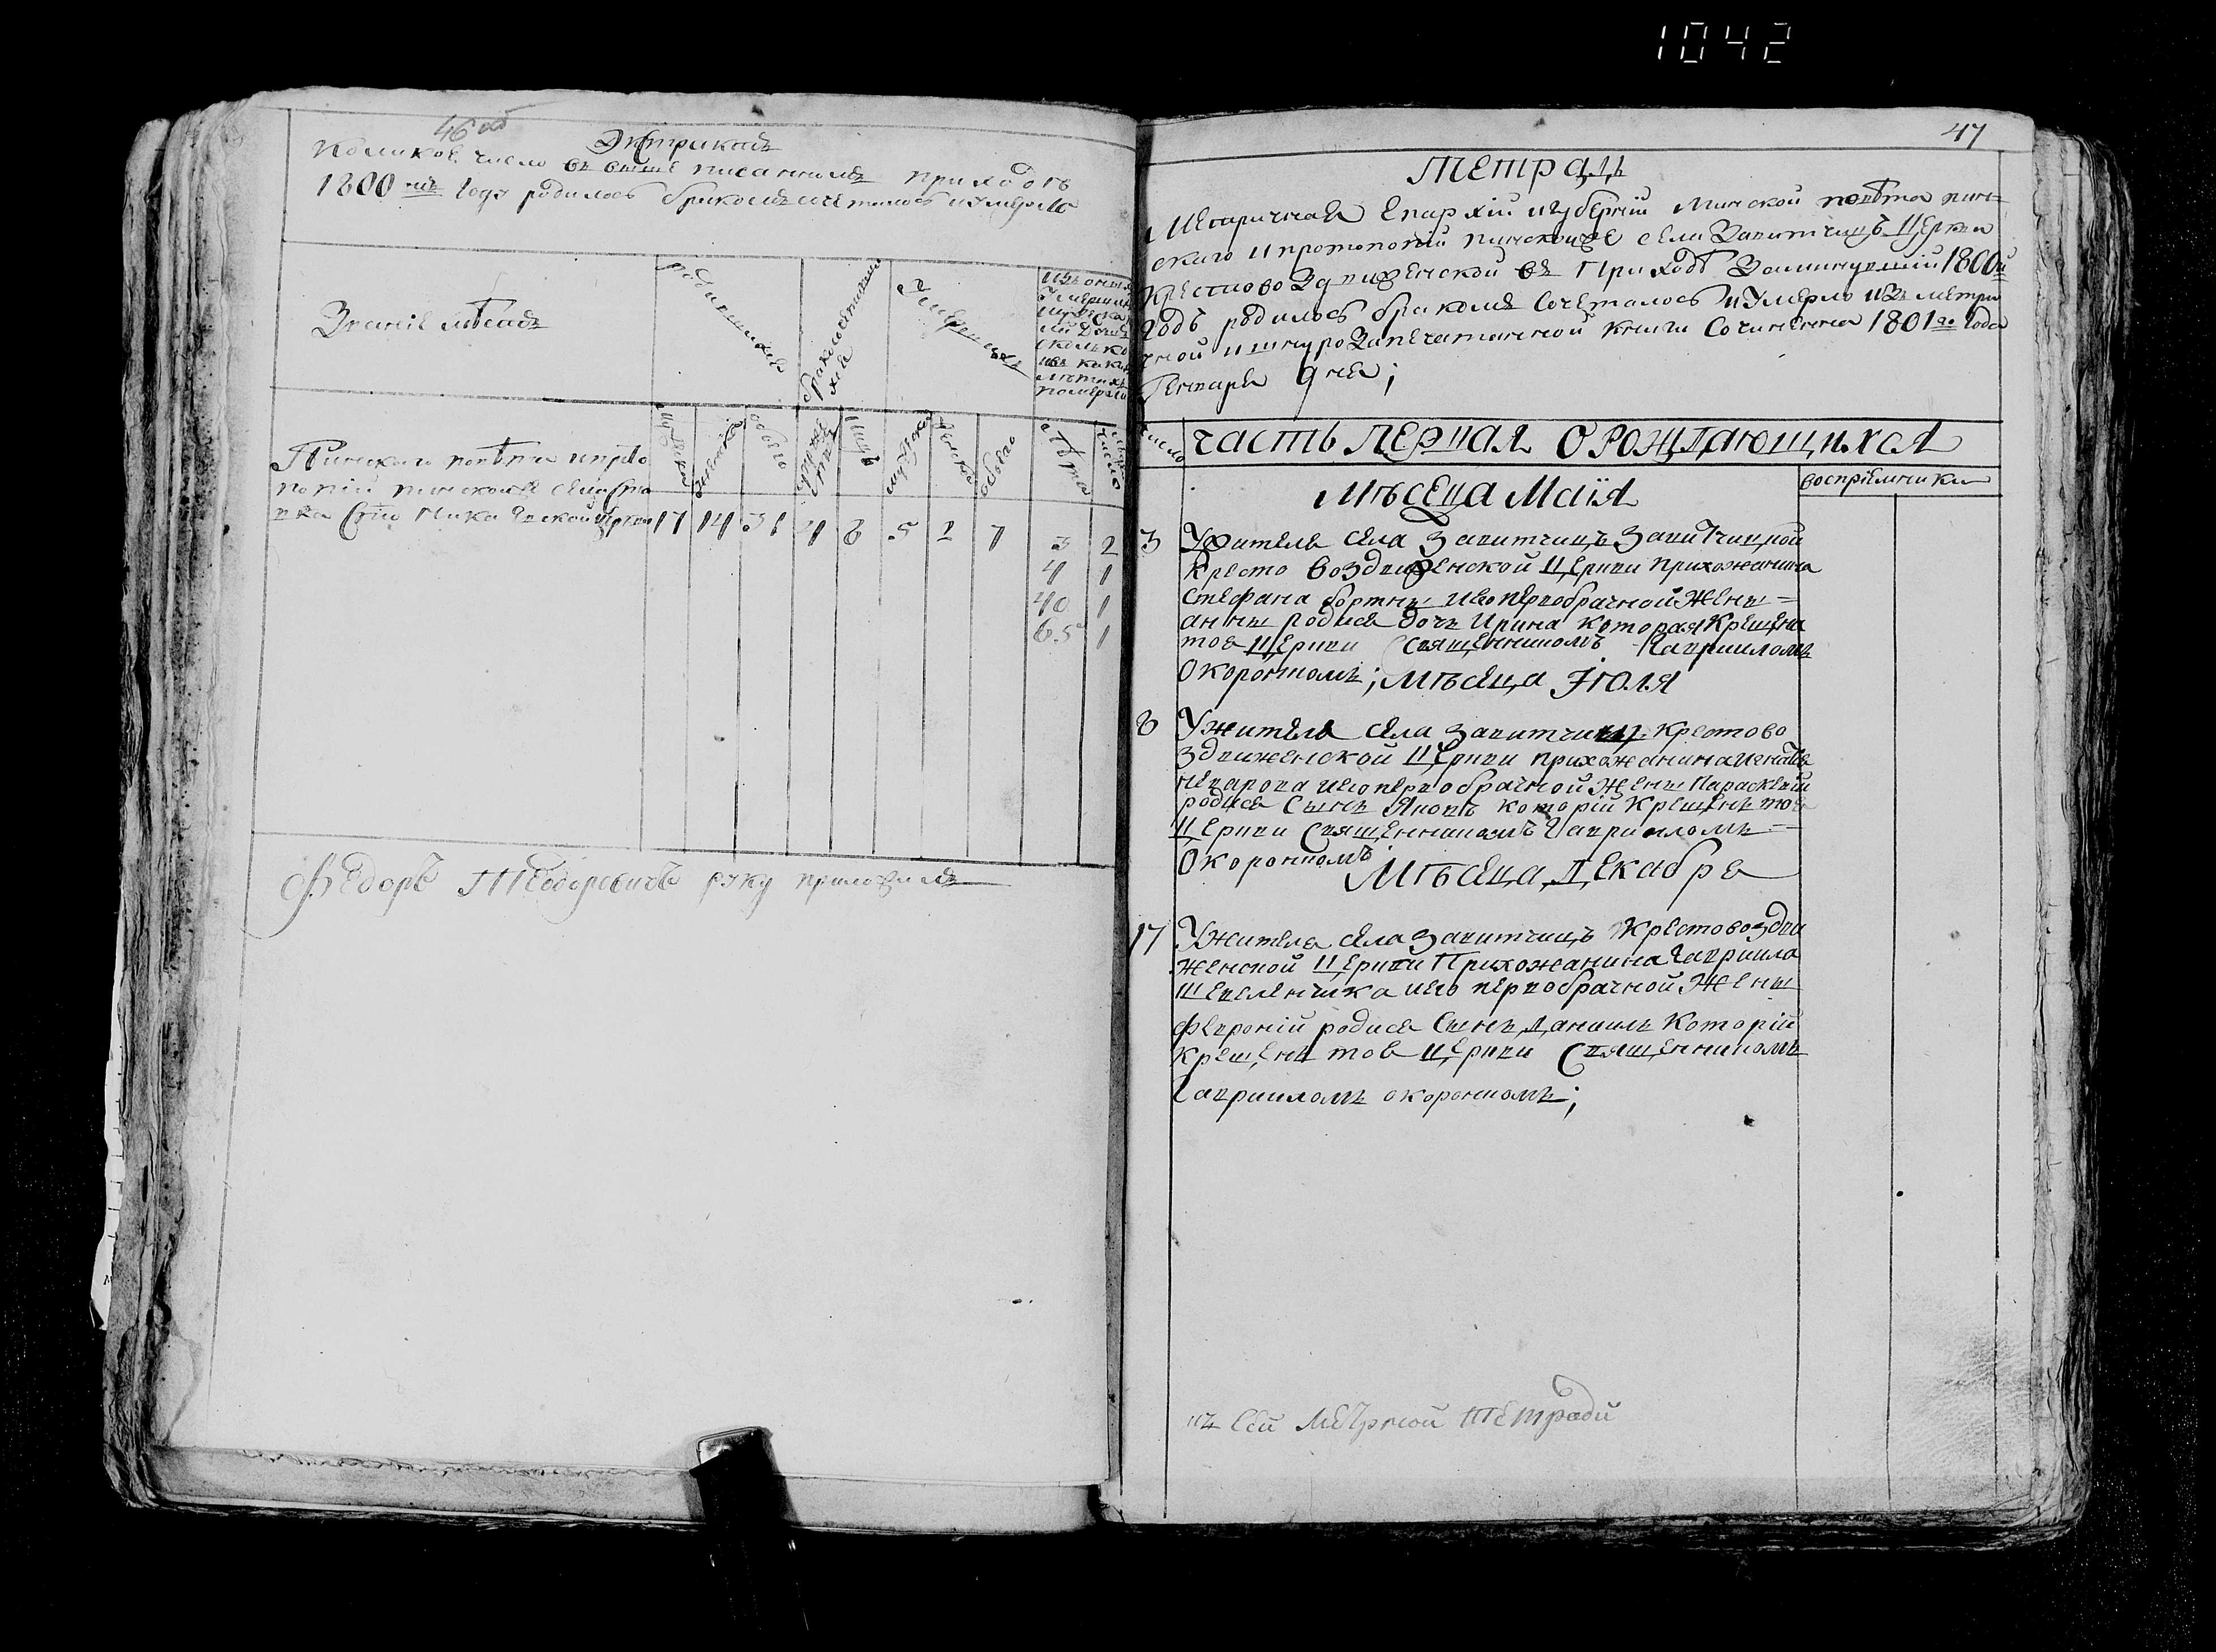 1042
46 об
Экстрикатъ
Коликое число въ выше писанномъ приходѣ
1800мъ Году родилось бракомъ сочеталось и Умерло
Званіе мѣстъ
родившихся
бракосочетавшихся
Умершихъ
изъ оныхъ
Умерших
сколько
изъ каких
лѣтахъ
померли
мужска
женска
обоего
супруже
ства
лицъ
мужска
женска
обоего
лѣта
число
Пинского повѣта и прото
попіи пинской села
Свто Николаевской Церкви 17 14 31 4 8 5 2 7 3 2
4 1
40 1
65 1
Федоръ Теодоровичъ руку приложилъ
47
Тетрадь
Метричная Епархіи и губерніи Минской повѣта пин=
скаго и протопопіи пинской села Вавитчицъ Церкви
Крестово Здвиженской въ Приходѣ Заминувшій 1800й
Годъ родилось бракомъ Сочеталось и Умерло изъ метри
чной и шнуро Запечатанной книги Сочиненна 1801го Года
Генваря 9 дня;
число
Часть Первая О Рождающихся
воспріемники
Мѣсеца Маія
3 Ужителя села Завитчицъ Завитчицкой
Кресто воздвиженской Церкви прихожанина
Стефана бортны иего первобрачной Жены=
анны родися дочь Ирина Которая Крещена
тоя Церкви Священникомъ Гаврииломъ
Окоронкомъ; Мѣсяца Іюля
8 Ужителя села Завитчицъ Крестово
здвиженской Церкви прихожанина Игнатія
невгрова иего первобрачной Жены Параскевіи
родися Сынъ Яковъ Которій Крещенъ тоя
Церкви Священникомъ Гаврииломъ=
Окоронкомъ; Мѣсяца Декабря
17 Ужителя села Завитчицъ Крестовоздви
женской Церкви Прихожанина Гавриила
Шевеленчика иего первобрачной Жены
Февроніи родися Сынъ Даниилъ Которій
Крещенъ тоя Церкви Священникомъ
Гавриломъ окоронкомъ;
Къ Сей Метрчной Тетради